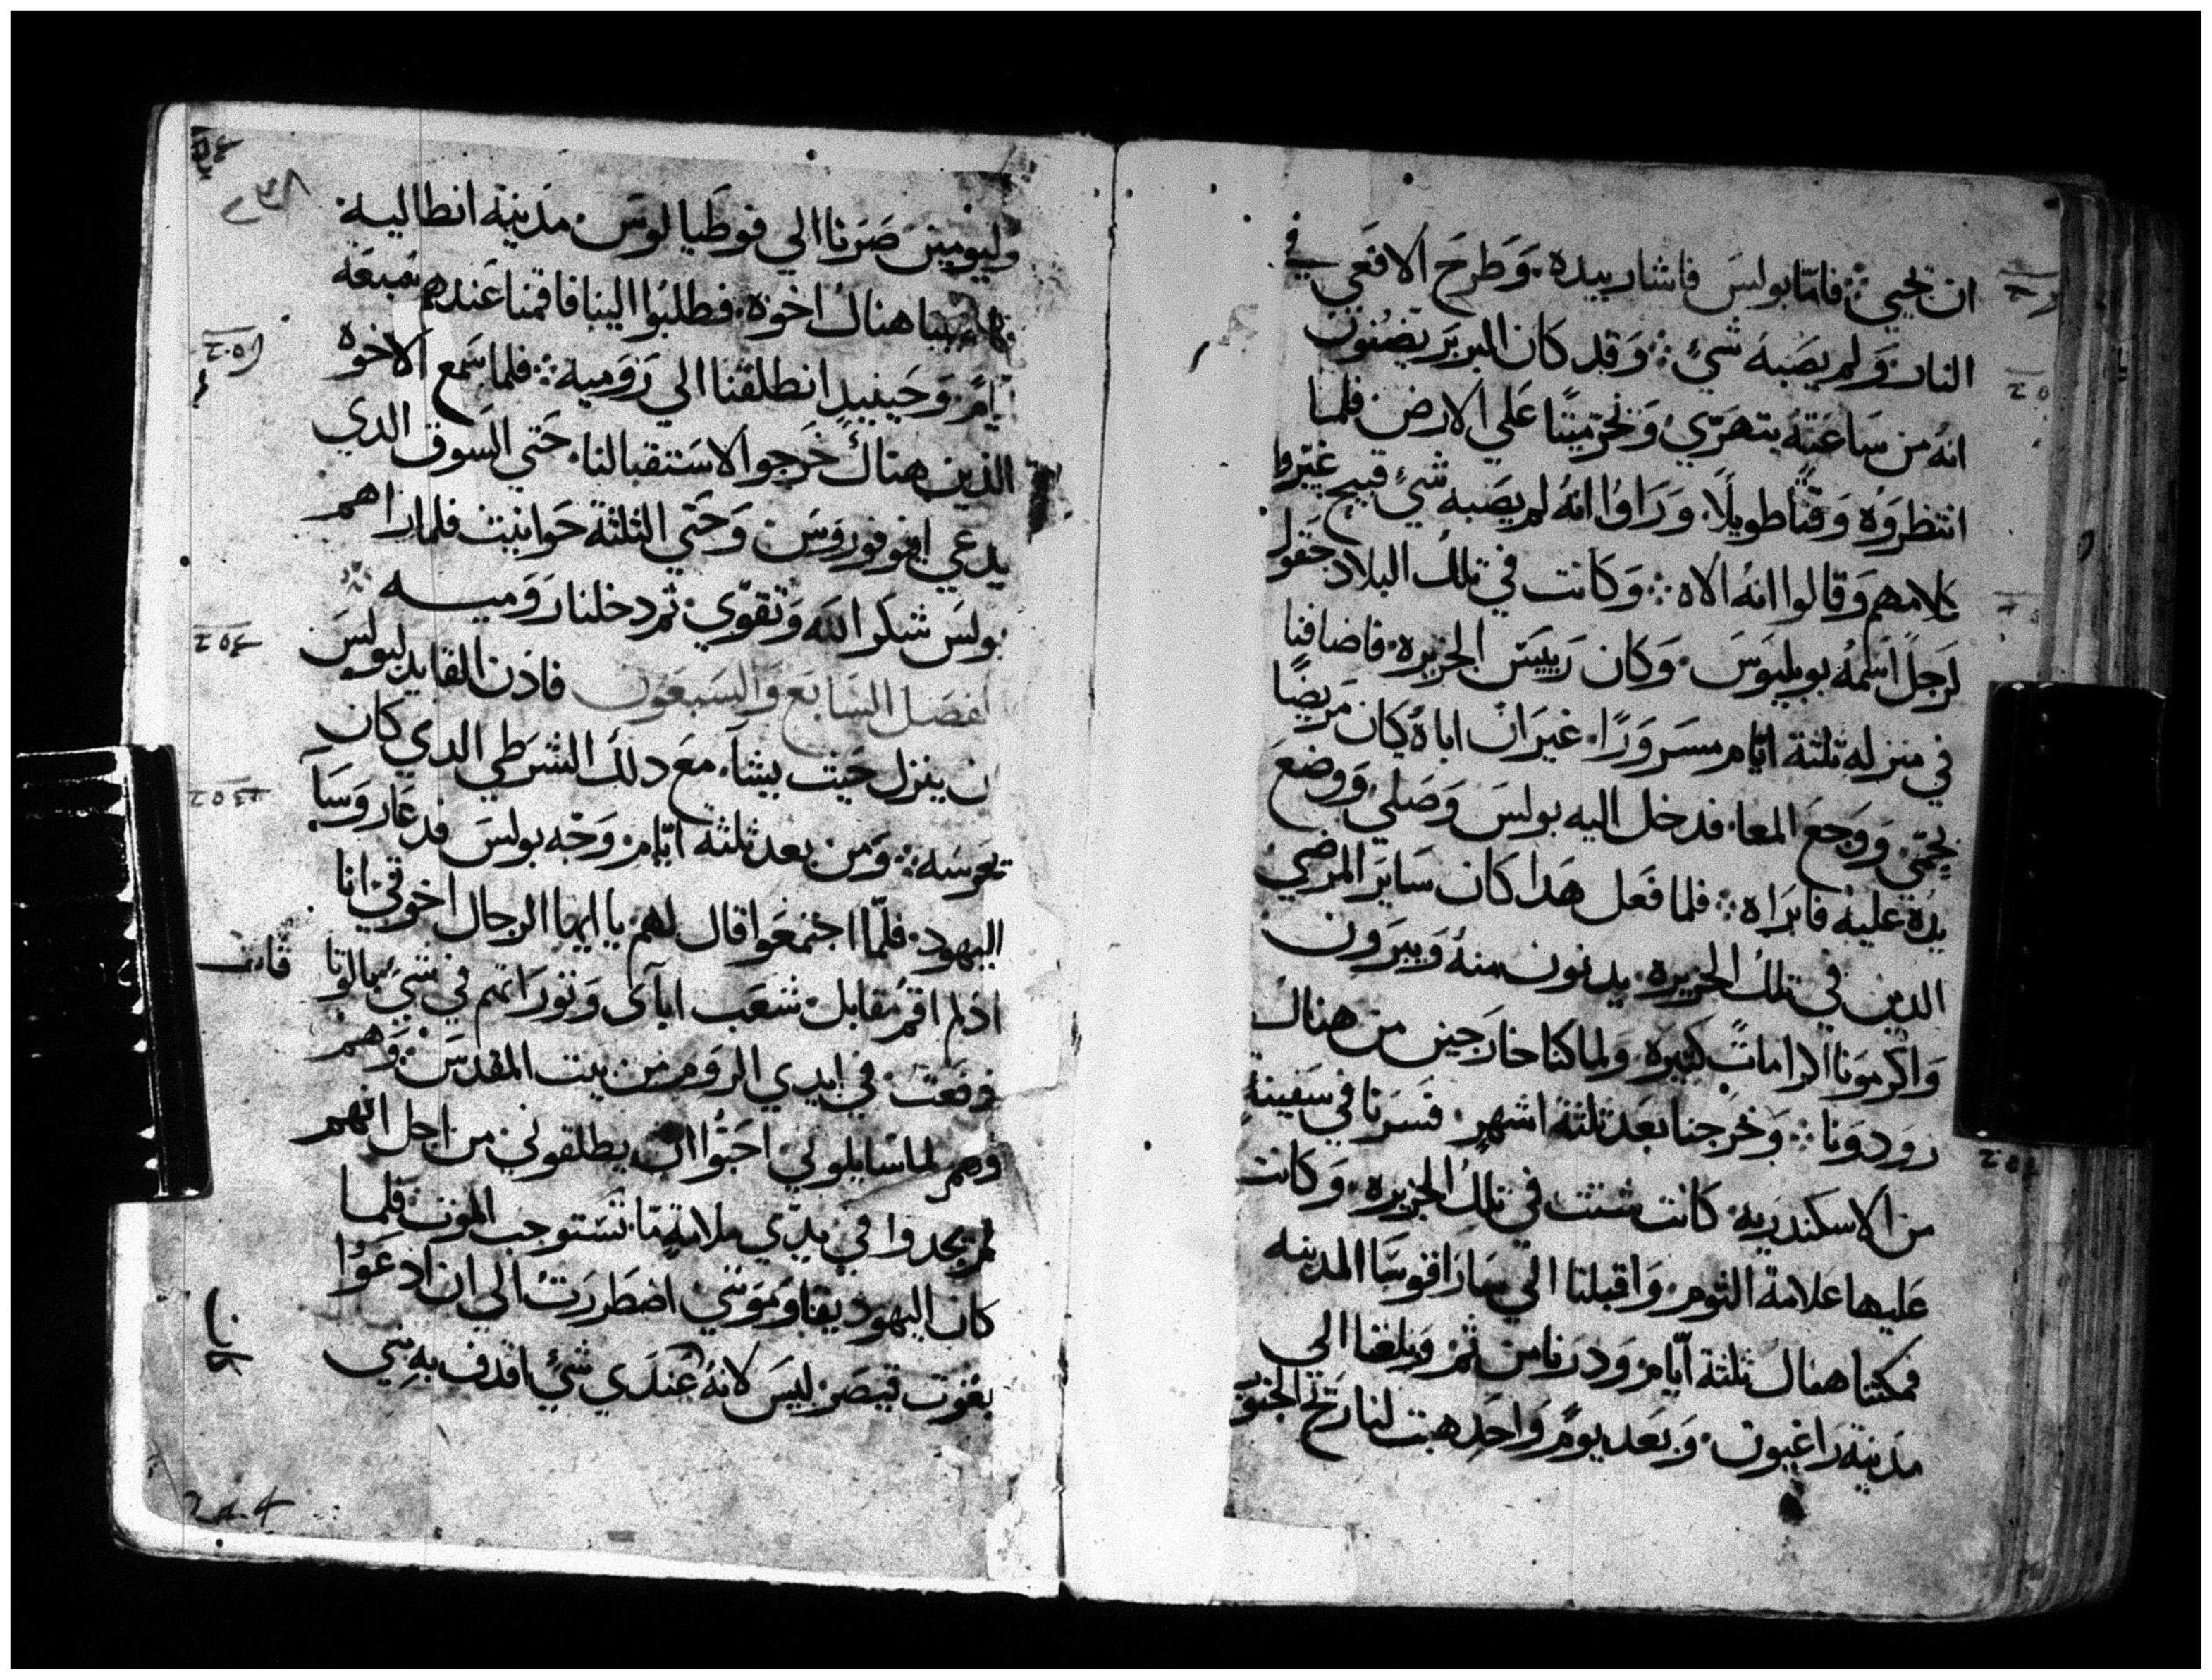 ان تحيي فامّا بولسَ فاشار بيده وَطرحَ الافعَي في
النار وَلم يصَبهُ شيءٍ وَقد كان البربرَ يضنون
انهُ من سَاعَتهُ يتهرّي وَنخرّ ميتًا عَلي الارض فلما
انتظروَه وَقتًا طويلًا وَرَاوُا انهُ لم يصَبه شيءٍ قبيح غيّروا
كلامهم وَقالوا انهُ الاه وَكانت في تلك البلاد حَقول
لرَجلٍ اسمهُ بوبليوَسَ وَكان رَييسَ الجزيره فاضافنا
في منزله ثلثة ايّام مسرَورًا غيرَ ان اباهُ كان مرَيضًا
بحمّي وَوَجعَ المعا فدخل اليه بولسَ وَصَلي وَوضعَ
يدُه عليهِ فابرَاه فلما فعَل هدا كان سَايرَ المرضي
الدين في تلك الجزيره يدنون منهُ وَيبرَون
وَاكرَموَنا اكراماتٍ كثيره وَلما كنا خارَجين من هناك
زودوَنا وَخرَجنا بعَد ثلثة اشهرٍ فسَرنا في سَفينةٍ
من الاسكندريه كانت شتت في تلك الجزيره وَكانت
عَليها عَلامة التوم وَاقبلنا الي سَارَاقوسَا المدينه
فمكثنا هناك ثلثة ايّام وَدرَنا من ثم وَبلغنا الي
مدينة رَاغيون وَبعَد يومٍ وَاحَد هبت لنا رَيح الجنوَب
وليوَمين صَرَنا الي فوطَيالوسَ مدَينة انطاليه
هناك اخوَه فطلبُوا الينا فاقمنا عَندهم سَبعَة
ايامٍ وَحَينيدٍ انطلقنا الي رَوَميه فلما سَمع الاخوه
الذين هناك خرَجوا لاسَتقبالنا حَتي السَوق الدي
يدعَي افوفوروسَ وَحَتي الثلثة حَوانيت فلما رَاهم
بولسَ شكر اللّه وَتقوّي ثم دخلنا رَوَميه
الفصَل السَابعَ وَالسَبعَون فاذن القايد لبولسَ
ان ينزل حَيث يشآء مَع دلك الشرَطي الدي كان
يحرسَه وَمن بعد ثلثة ايّام وَجّه بولسَ فدعَا روَسَا
اليهود فلمّا اجتمعَوا قال لهم يا ايها الرجال اخوَتي انا
اذلم اقم مُقابل شعَب ابآى وَتورَاتهم في شيءٍ
وَقعَت في ايدي الروَم من بيت المقدسَ وَهم
وَهم لما سَايلوني احَبُوا ان يطلقوني من اجل انهم
لم يجدوا في يدّي ملامةٍ مّا تستوجب الموَت فلما
كان اليهود يقاوَموَنني اضطرَرتُ الي ان ادعَوُا
بغوَت قيصَر ليسَ لانهُ عَندَي شيءٍ اقدف به بني
٢٣٨